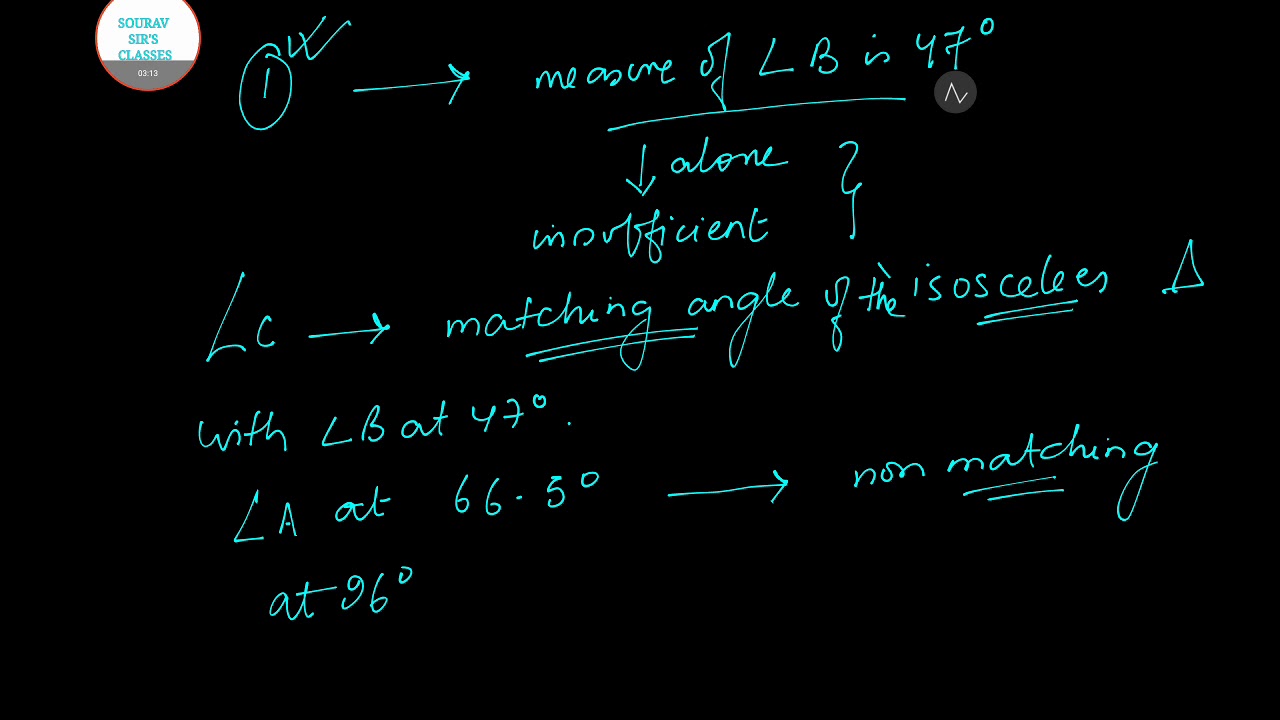 SOURAV
SIR'S
CLASSES
03:13
① → measure of ∠B is 47°
↓ alone }
insufficient
∠C → matching angle of the isoscelees Δ
with ∠B at 47°.
∠A at 66.5° → non matching
at 96°